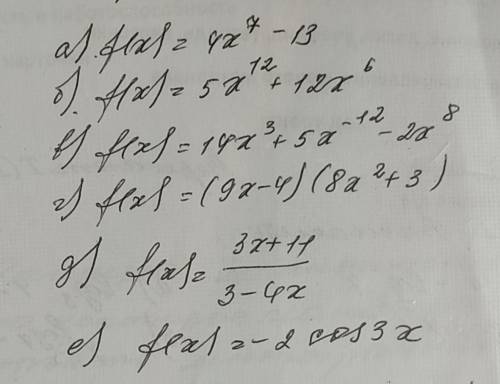 а) f(x) = 4x⁷ - 13
б) f(x) = 5x¹² + 12x⁶
в) f(x) = 14x³ + 5x⁻¹² - 2x⁸
г) f(x) = (9x-4)(8x²+3)
д) f(x) = (3x+11)/(3-4x)
е) f(x) = -2 cos3x